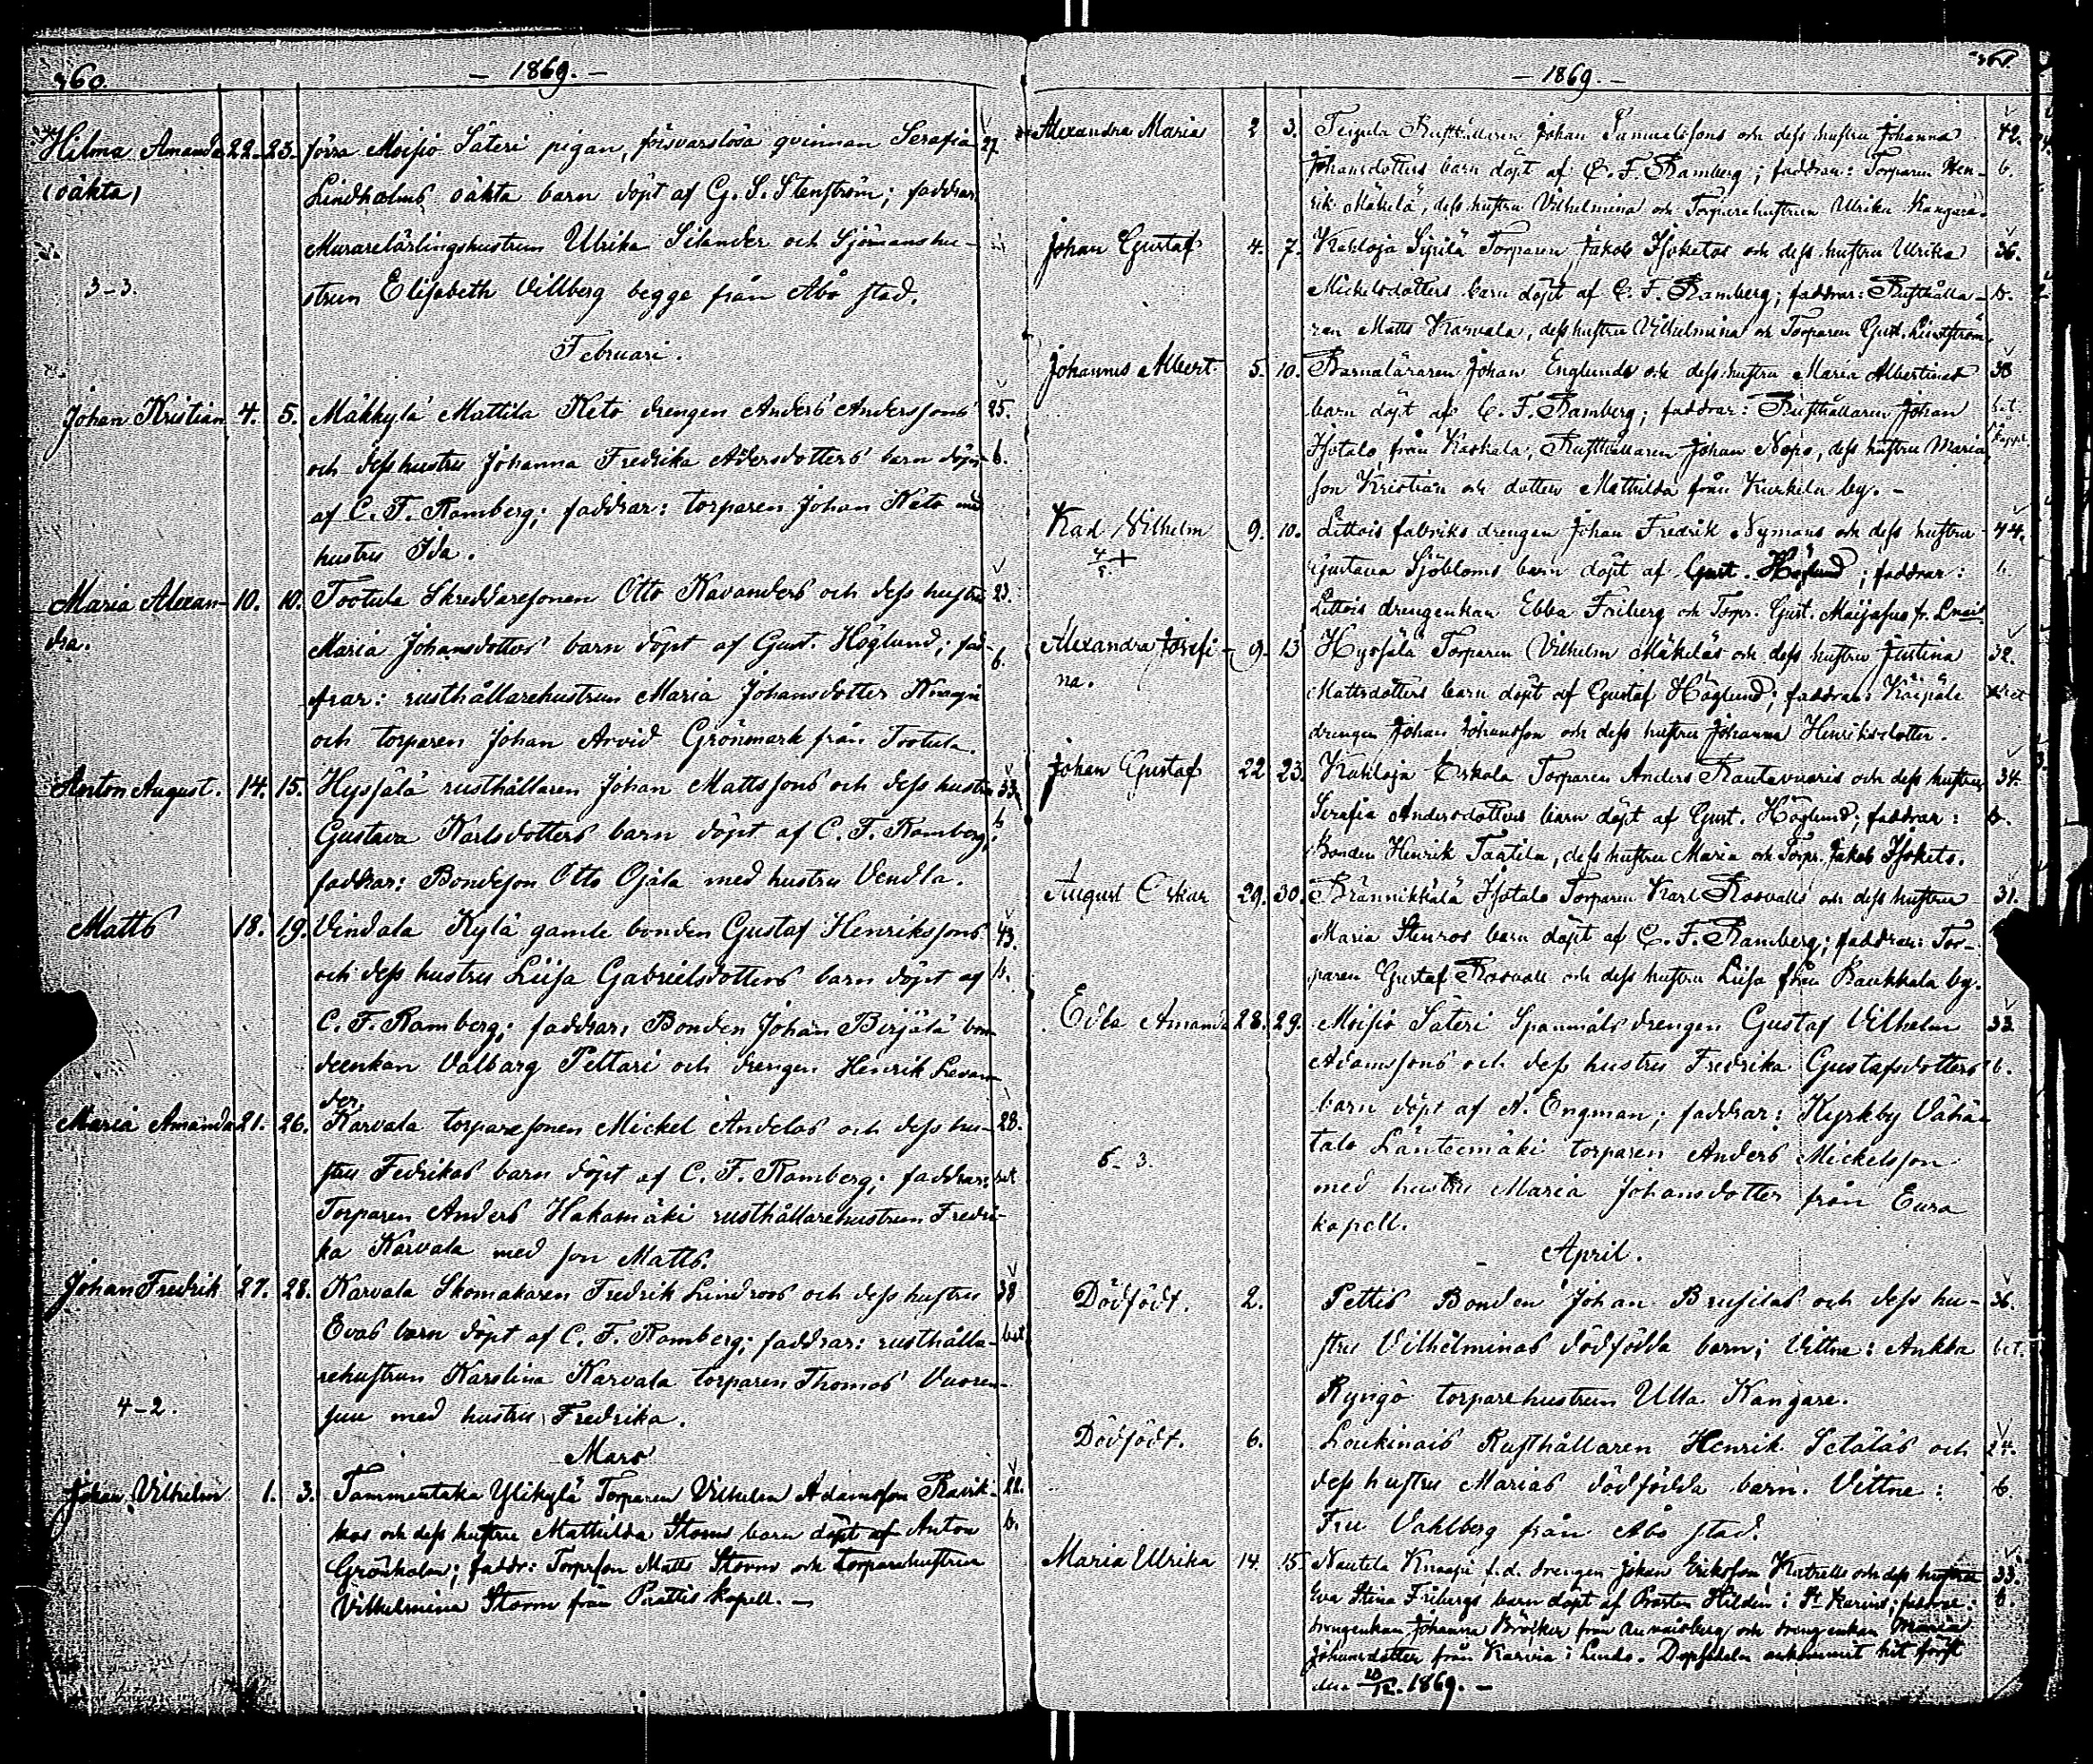 360.
— 1869. —
Hilma Amanda 22. 23. förra Moisio Säteri pigan, försvarslösa qvinnan Serafia 27.
(oäkta) Lindholms oäkta barn döpt af G. S. Stenström; faddrar
Murarelärlingshustrun Ulrika Silander och Sjömanshu-
3–3. strun Elisabeth Villberg begge från Åbo stad.
Februari.
Johan Kristian 4. 5. Mäkkylä Mattila Keto drengen Anders Anderssons 25.
och dess hustru Johanna Fredrika Adersdotters barn döpt b.
af C. F. Ramberg; faddrar: torparen Johan Keto med
hustru Ida.
Maria Alexan- 10. 10. Tootula Skreddaresonen Otto Kavanders och dess hustru 23.
dra. Maria Johansdotters barn döpt af Gust. Höglund; fad- b.
drar: rusthållarehustrun Maria Johansdotter Knaapi
och torparen Johan Arvid Grönmark från Tootula.
Anton August. 14. 15. Hysjälä rusthållaren Johan Mattssons och dess hustru 33.
Gustava Karlsdotters barn döpt af C. F. Ramberg; b
faddrar: Bondeson Otto Ojala med hustru Vendla.
Matts 18. 19. Vindala Kylä gamle bonden Gustaf Henrikssons 43.
och dess hustru Liisa Gabrielsdotters barn döpt af b.
C. F. Ramberg; faddrar: Bonden Johan Birjälä bon-
deenkan Valbarg Pettari och drengen Henrik Levan-
der.
Maria Amanda 21. 26. Karvala torparesonen Mickel Andelas och dess hu- 28.
stru Fedrikas barn döpt af C. F. Ramberg; faddrar: bet
Torparen Anders Hakamäki rusthållarehustrun Fredri-
ka Karvala med son Matts.
Johan Fredrik 27. 28. Karvala Skomakaren Fredrik Lindroos och dess hustru 38
Evas barn döpt af C. F. Ramberg; faddrar: rusthålla- bet
rehustrun Karolina Karvala torparen Thomas Vuoren-
4–2. suu med hustru Fredrika.
Mars
Johan Vilhelm 1. 3. Tammentaka Ylikylä Torparen Vilhelm Adamsson 22.
kas och dess hustru Mathilda Storms barn döpt af Anton b.
Grönholm; faddr: Torprson Matts Storm och torparehustrun
Vilhelmina Storm från Pattis kapell. —
361.
— 1869. —
Alexandra Maria 2 3. Rusthållaren Johan Samuelssons och dess hustru Johanna 42.
Johansdotters barn döpt af C. F. Ramberg; faddrar: Torparen Hen- b.
rik Mäkelä, dess hustru Vilhelmina och Torparehustrun Ulrika Kangare.
Johan Gustaf 4. 7. Kakloja Syrilä Torparen Jakob Isoketos och dess hustru Ulrika 36.
Mickelsdotters barn döpt af C. F. Ramberg; faddrar: Rusthålla- b.
ren Matts Karvala, dess hustru Vilhelmina och Torparen Gust. Lindström.
Johannes Albert 5. 10. Barnaläraren Johan Englunds och dess hustru Maria Albertinas 38
barn döpt af C. F. Ramberg; faddrar: Rusthållaren Johan bet.
Isotalo från Kaskala, Rusthållaren Johan Nopo, dess hustru Maria,
son Kristian och dotter Mathilda från Kurkila by. –
Karl Vilhelm 9. 10. Littois fabriks drengen Johan Fredrik Nymans och dess hustru 44.
Gustava Sjöbloms barn döpt af Gust. Höglund; faddrar: b.
Littois drengenkan Ebba Friberg och Torpr. Gust.
Alexandra Josefi- 9. 13 Hysjälä Torparen Vilhelm Mäkeläs och dess hustru Justina 32.
na. Mattsdotters barn döpt af Gustaf Höglund; faddrar:
drengen Johan Johansson och dess hustru Johanna Henriksdotter.
Johan Gustaf 22 23. Kakloja Eskola Torparen Anders Rautavuoris och dess hustru 34.
Serafia Andersdotters barn döpt af Gust. Höglund; faddrar: b.
Bonden Henrik Taatila, dess hustru Maria och Torpr. Jakob Isoketo.
August Oskar 29. 30. Isotalo Torparen Karl Rosvalls och dess hustru 31.
Maria Stenros barn döpt af C. F. Ramberg; faddrar: Tor-
paren Gustaf Rosvall och dess hustru Liisa från Raukkala by.
Edla Amanda 28. 29. Moisio Säteri Spanmåls drengen Gustaf Vilhelm 33
Adamssons och dess hustru Fredrika Gustafsdotters b.
barn döpt af A. Engman; faddrar: Kyrkby Vähä-
6–3. talo Läntecmäki torparen Anders Mickelsson
med hustru Maria Johansdotter från Eura
kapell.
April.
Dödfödt. 2. Pettis Bonden Johan Brusilas och dess hu- 36.
stru Vilhelminas dödfödda barn; Vittne: Ankka bet.
Ryngö torparehustrun Ulla Kangare.
Dödfödt. 6. Loukinais Rusthållaren Henrik Setäläs och 24.
dess hustru Marias dödfödda barn. Vittne: b.
Fru Vahlberg från Åbo stad.
Maria Ulrika 14. 15 Nautela Knaapi f.d. drengen Johan Eriksson och dess hustru 33.
Eva Stina Fribergs barn döpt af Prosten Hildén i St Karins; faddrar: b.
drengenkan Johanna Bröcker från Aunaisberg och drengenkan Maria
Johansdotter från Karvia i Lundo. Dopsedeln ankommit hit först
den 20/12. 1869. –